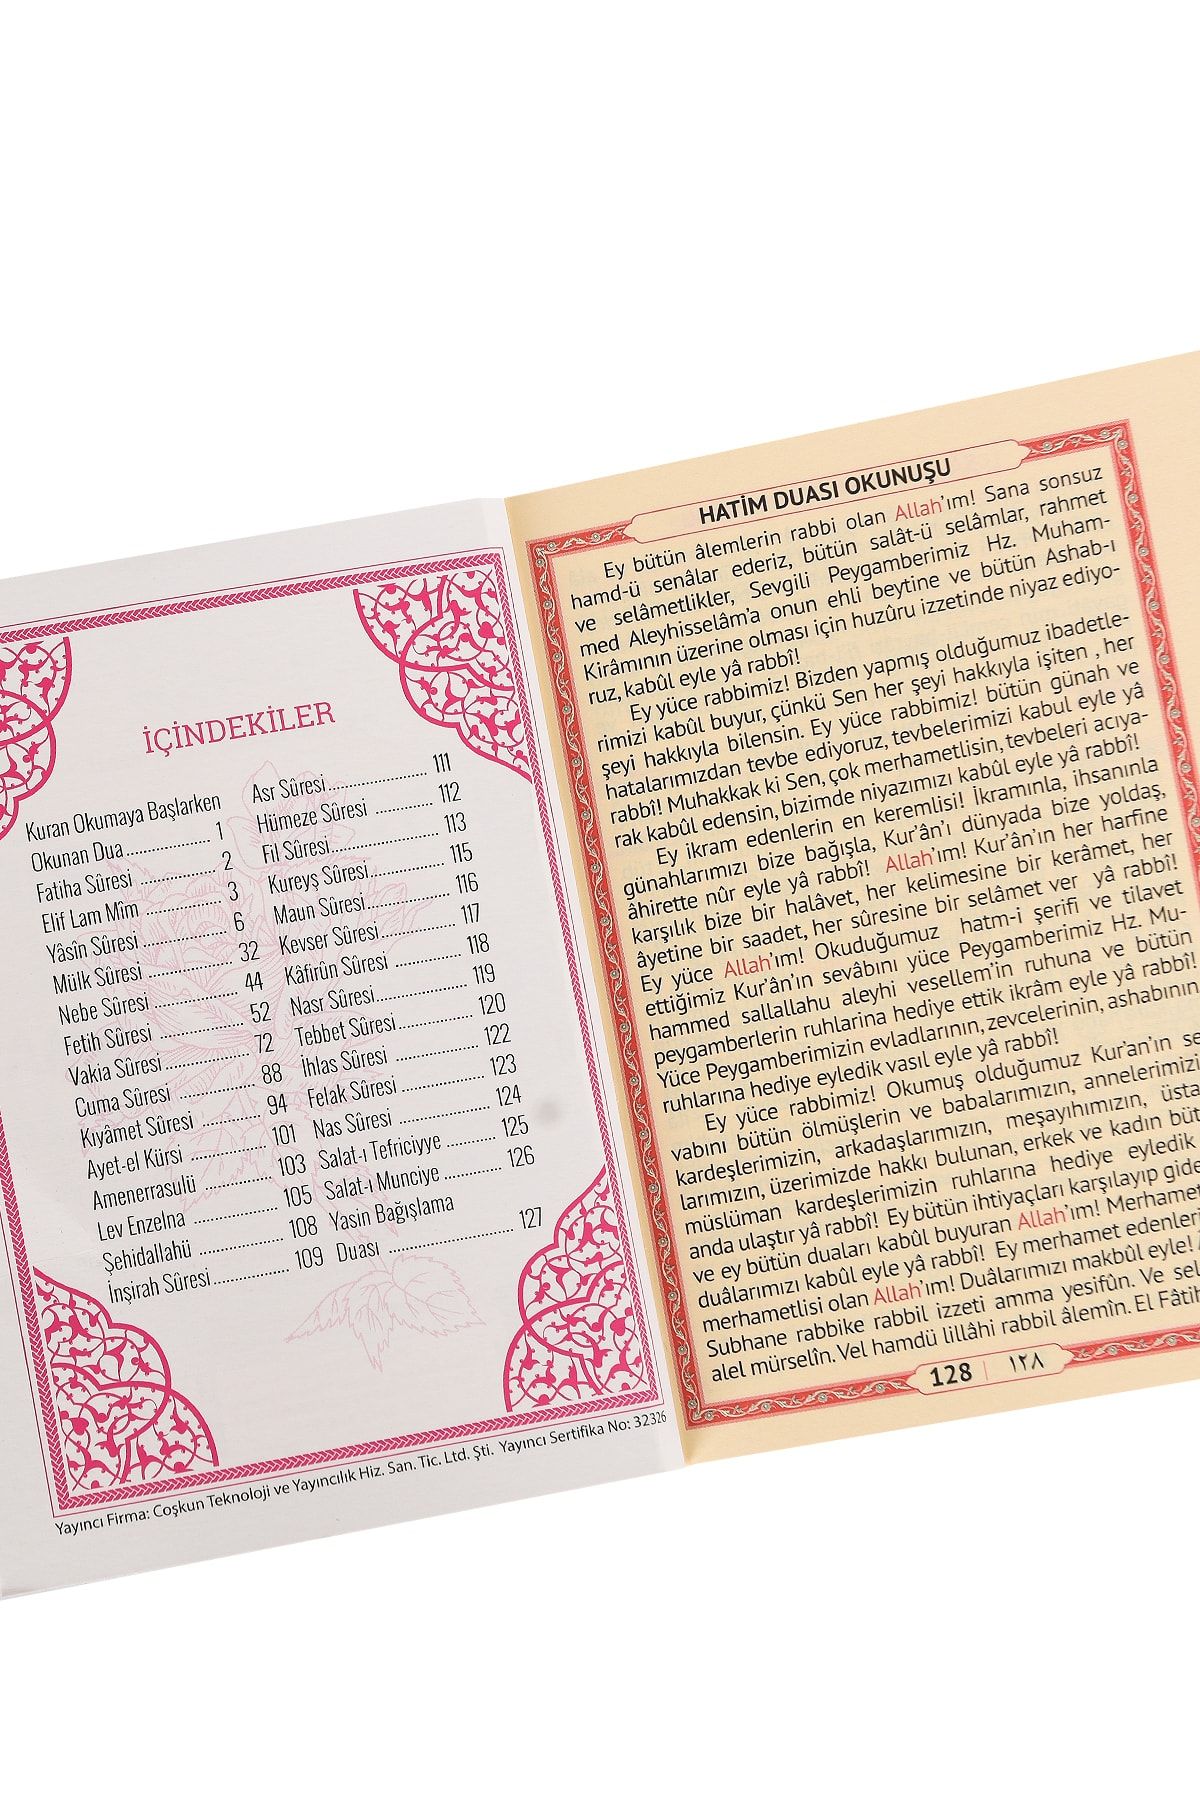 İÇİNDEKİLER
Kuran Okumaya Başlarken
Okunan Dua 1
Fatiha Sûresi 2
Elif Lam Mîm 3
Yâsîn Sûresi 6
Mülk Sûresi 32
Nebe Sûresi 44
Fetih Sûresi 52
Vakia Sûresi 72
Cuma Sûresi 88
Kıyâmet Sûresi 94
Ayet-el Kürsi 101
Amenerrasulü 103
Lev Enzelna 105
Şehidallahü 108
İnşirah Sûresi 109
Asr Sûresi 111
Hümeze Sûresi 112
Fil Sûresi 113
Kureyş Sûresi 115
Maun Sûresi 116
Kevser Sûresi 117
Kâfirûn Sûresi 118
Nasr Sûresi 119
Tebbet Sûresi 120
İhlas Sûresi 122
Felak Sûresi 123
Nas Sûresi 124
Salat-ı Tefriciyye 125
Salat-ı Munciye 126
Yasin Bağışlama
Duası 127
Yayıncı Firma: Coşkun Teknoloji ve Yayıncılık Hiz. San. Tic. Ltd. Şti. Yayıncı Sertifika No: 32326
HATİM DUASI OKUNUŞU
Ey bütün âlemlerin rabbi olan Allah'ım! Sana sonsuz
hamd-ü senâlar ederiz, bütün salât-ü selâmlar, rahmet
ve selâmetlikler, Sevgili Peygamberimiz Hz. Muham-
med Aleyhisselâm'a onun ehli beytine ve bütün Ashab-ı
Kirâmının üzerine olması için huzûru izzetinde niyaz ediyo-
ruz, kabûl eyle yâ rabbî!
Ey yüce rabbimiz! Bizden yapmış olduğumuz ibadetle-
rimizi kabûl buyur, çünkü Sen her şeyi hakkıyla işiten , her
şeyi hakkıyla bilensin. Ey yüce rabbimiz! bütün günah ve
hatalarımızdan tevbe ediyoruz, tevbelerimizi kabul eyle yâ
rabbî! Muhakkak ki Sen, çok merhametlisin, tevbeleri acıya-
rak kabûl edensin, bizimde niyazımızı kabûl eyle yâ rabbî!
Ey ikram edenlerin en keremlisi! İkramınla, ihsanınla
günahlarımızı bize bağışla, Kur'ân'ı dünyada bize yoldaş,
âhirette nûr eyle yâ rabbî! Allah'ım! Kur'ân'ın her harfine
karşılık bize bir halâvet, her kelimesine bir kerâmet, her
âyetine bir saadet, her sûresine bir selâmet ver yâ rabbî!
Ey yüce Allah'ım! Okuduğumuz hatm-i şerifi ve tilavet
ettiğimiz Kur'ân'ın sevâbını yüce Peygamberimiz Hz. Mu-
hammed sallallahu aleyhi vesellem'in ruhuna ve bütün
peygamberlerin ruhlarina hediye ettik ikrâm eyle yâ rabbî!
Yüce Peygamberimizin evladlarının, zevcelerinin, ashabının
ruhlarına hediye eyledik vasıl eyle yâ rabbî!
Ey yüce rabbimiz! Okumuş olduğumuz Kur'an'ın se
vabını bütün ölmüşlerin ve babalarımızın, annelerimizi
kardeşlerimizin, arkadaşlarımızın, meşayıhımızın, üsta
larımızın, üzerimizde hakkı bulunan, erkek ve kadın büt
müslüman kardeşlerimizin ruhlarına hediye eyledik
anda ulaştır yâ rabbî! Ey bütün ihtiyaçları karşılayıp gide
ve ey bütün duaları kabûl buyuran Allah'ım! Merhamet
duâlarımızı kabûl eyle yâ rabbî! Ey merhamet edenleri
merhametlisi olan Allah'ım! Duâlarımızı makbûl eyle!
Subhane rabbike rabbil izzeti amma yesifûn. Ve sel
alel mürselîn. Vel hamdü lillâhi rabbil âlemîn. El Fâtih
128 | ١٢٨